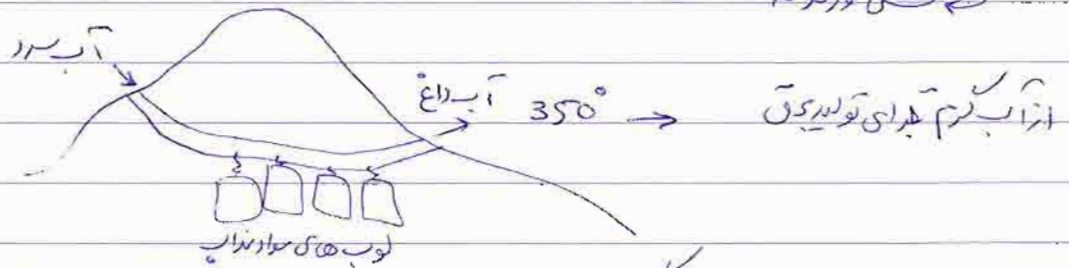 آب سرد
آب داغ 350° → از آب گرم برای تولید برق
لوب های مواد مذاب